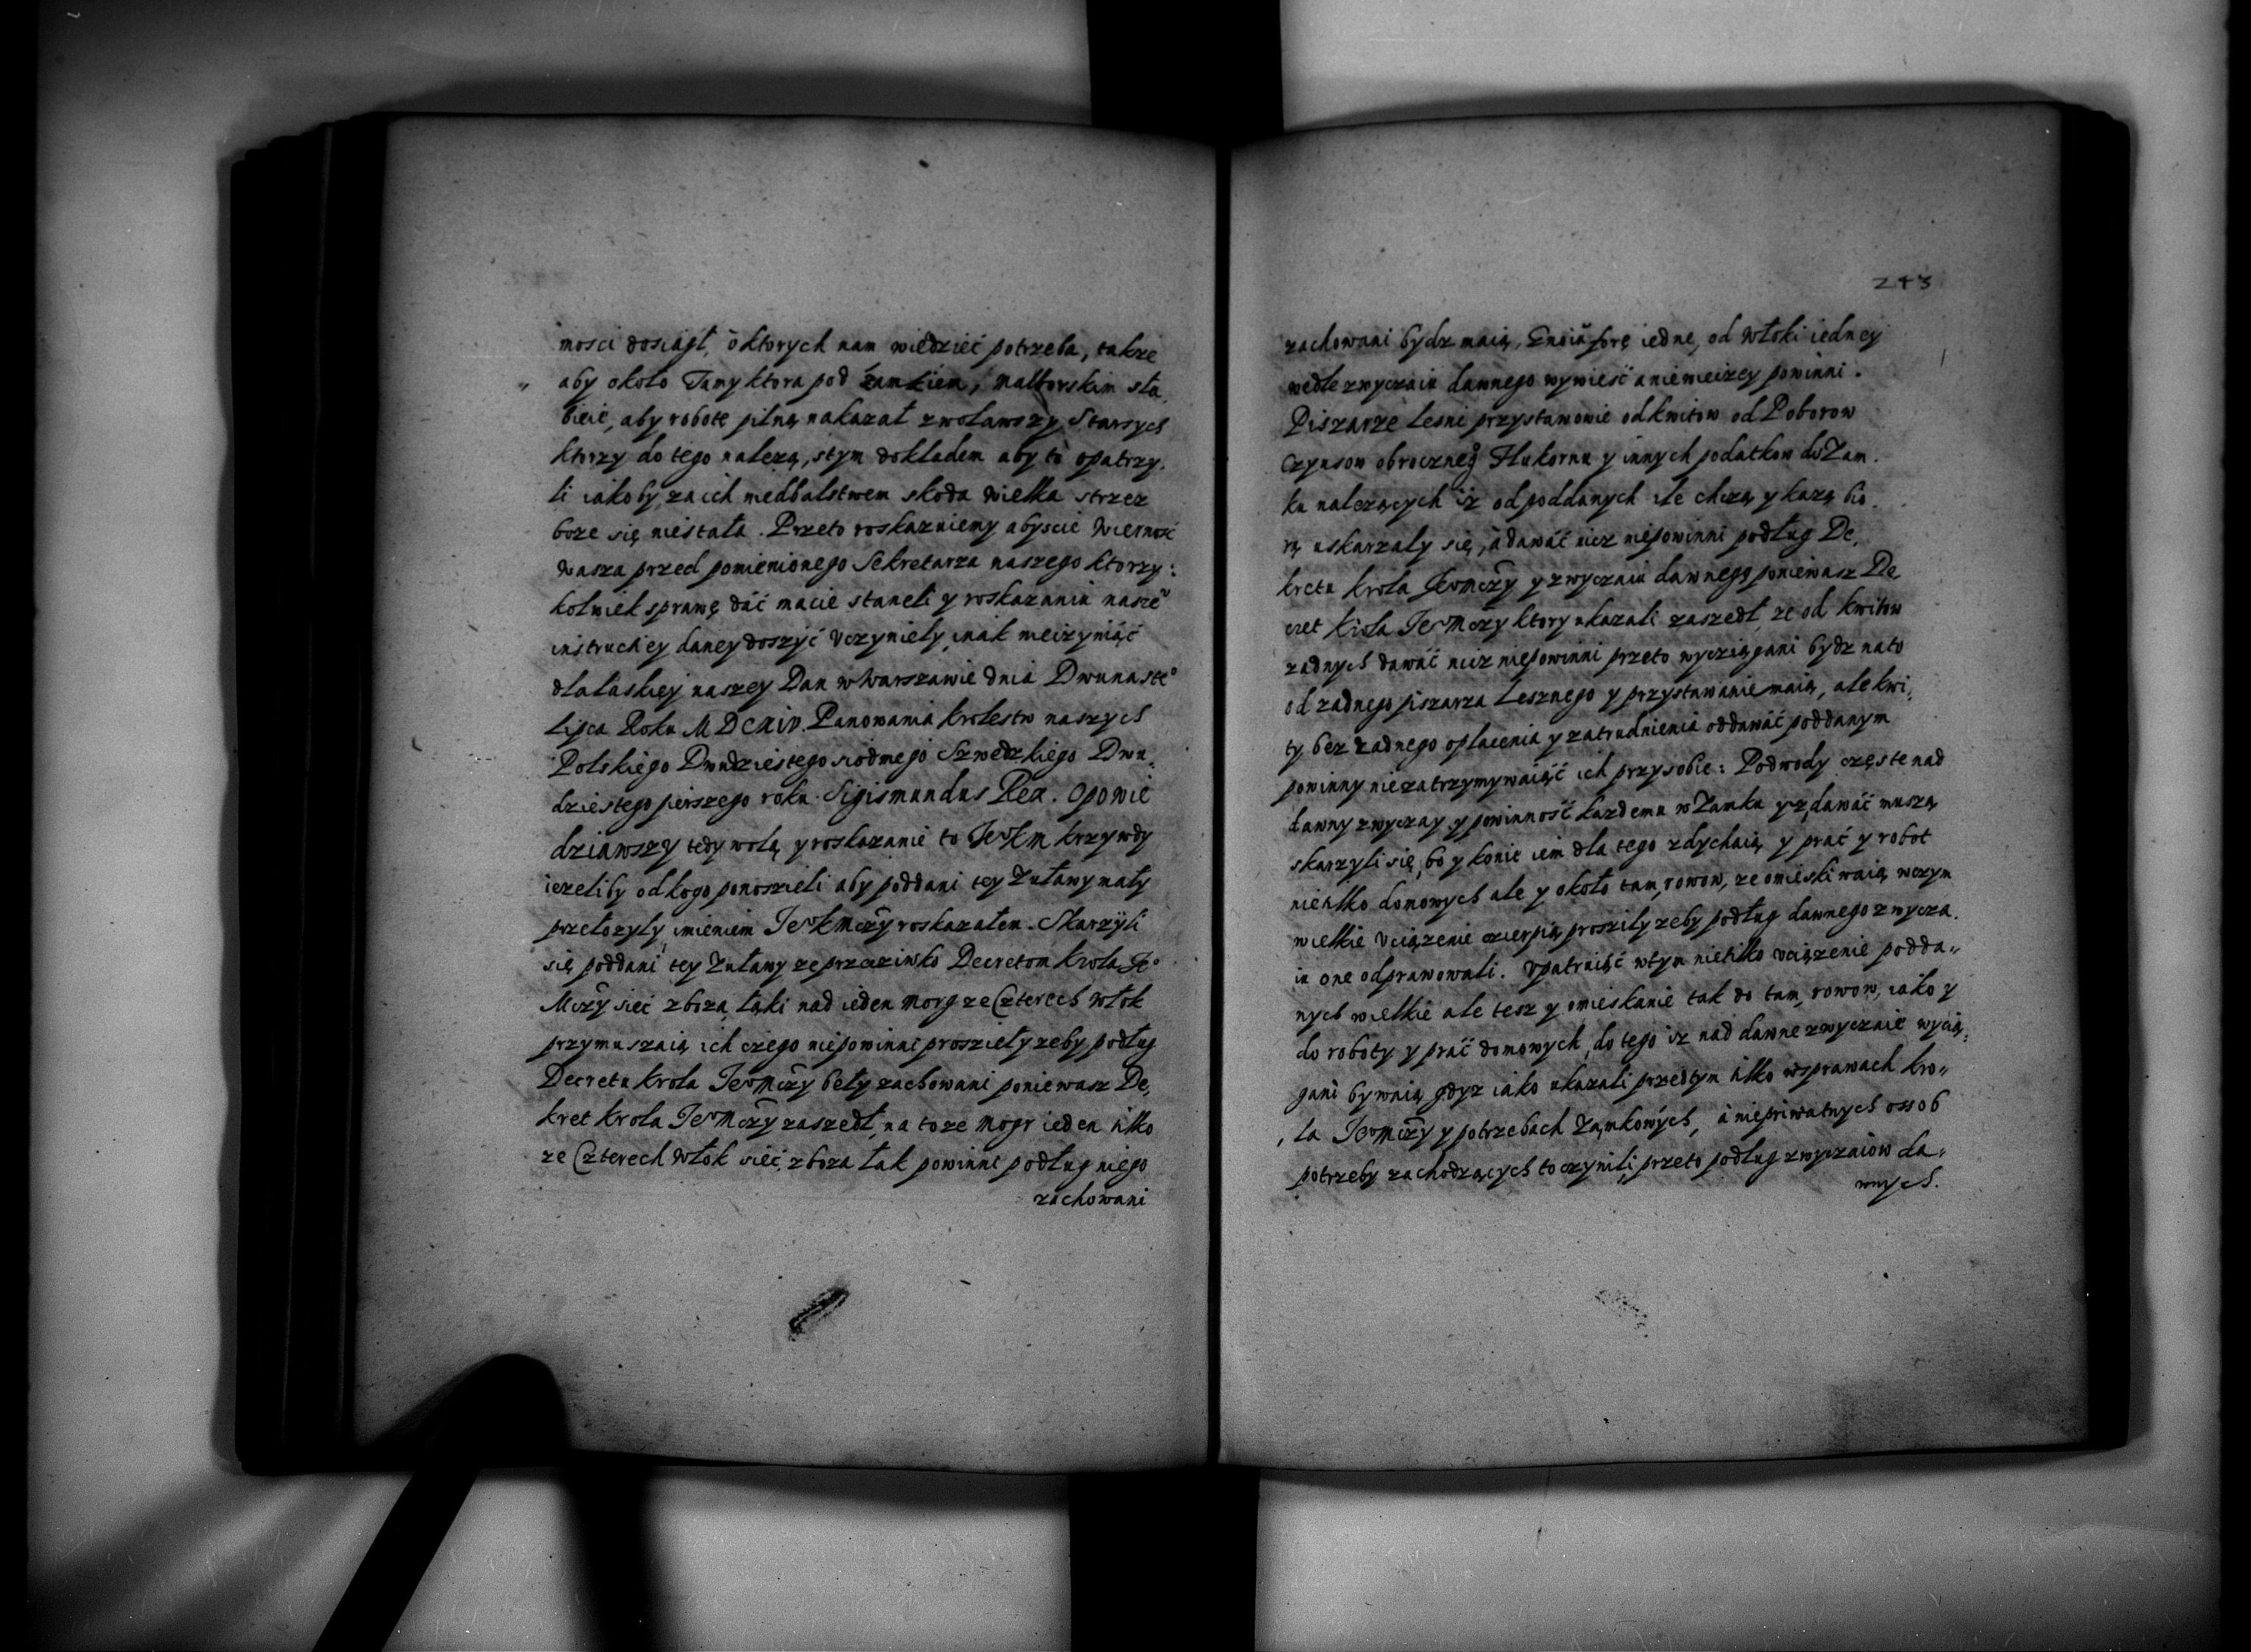 mosci dosiągł, o ktorych nam wiedzieć potrzeba, takze
aby około Tamy ktora pod zamkiem, malborskim sła
bieie, aby robote pilną nakazał zwoławszy Starsych
ktorzy do tego nalezą, stym dokładem aby to opatrzy.
li iakoby za ich niedbalstwem skoda wielka strzez
boze się niestała. Przeto roskazuiemy abyscie wiernosć
wasza przed pomienionego Sekretarza naszego ktorzy:
kolwiek sprawę dać macie staneli y roskazaniu nasze°
instructiey daney doszyć vczyniely, inak nieczyniąć
dla łaskiey naszey Dan w Warszawie dnia Dwunaste°
Lipca Roku MDCXIV. Panowania krolestw naszych
Polskiego Dwudziestego siodmego Szwedzkiego Dwu,
dziestego pierszego roku. Sigismundus Rex. Opowie
dziawszy tedy wolą y roskazanie to Je°KM krzywdy
iezeliby od kogo ponosieli aby poddani tey Zuławy mały
przełozyły, imieniem Je°KMczy roskazałem. Skarzyli
się poddani tey Zuławy ze przeciwko Decretom Krola Je°
Mczy sieć zboza, łąki nad ieden morg ze Czterech włok
przymuszaią ich czego niepowinni prosziely zeby podług
Decretu krola Je°Mczy beły zachowani poniewasz De,
kret krola Je°Mczy zaszedł, na to ze mogr ieden ilko
ze Czterech włok sieć, zboza łak powinni podług niego
zachowani
243
zachowani bydz maią, forę iedne, od włoki iedney
wedle zwyczaiu dawnego wywiesć a niewieczey powinni.
Piszarze Lesni przystawowie od kwitow od Poborow
Czynsow obroczneg° Hukornu y innych podatkow do Zam.
ku nalezących iz od poddanych ile chczą y kazą bio.
rą uskarzaly się, a dawać nicz niepowinni podług De,
kretu krola Je°Mczy y zwyczaiu dawnego poniewasz De,
cret Krola Je°Mczy ktory ukazali zaszedł, ze od kwitow
zadnych dawać nicz niepowinni przeto wyciągani bydz na to
od zadnego piszarza Lesznego y przystawa nie maią, ale kwi,
ty bez zadnego opłacenia y zatrudnienia oddawać poddanym
powinny niezatrzymywaiąć ich przy sobie: Podwody częste nad
dawny zwyczay y powinność kazdemu w Zamku dawać muszą
skarzyli się, bo y konie iem dla tego zdychaią y prać y robot
nie ilko domowych ale y około tam, rowow, ze omieskiwaią wczym
wielkie vciązenie czierpią prosziły zeby podług dawnego zwycza.
iu one odprawowali. Vpatruiąć wtym nie tilko vciązenie podda„
nych wielkie ale tesz y omieskanie tak do tam, rowow, iako y
do roboty y prać domowych, do tego iz nad dawne zwyczaie wycią,
gani bywaią gdyz iako ukazali przedtym ilko w sprawach kro„
la Je°Mczy y potrzebach Zamkowych, a nie priwatnych ossob
potrzeby zachodzących to czynili, przeto podług zwyczaiow da„
wnych.